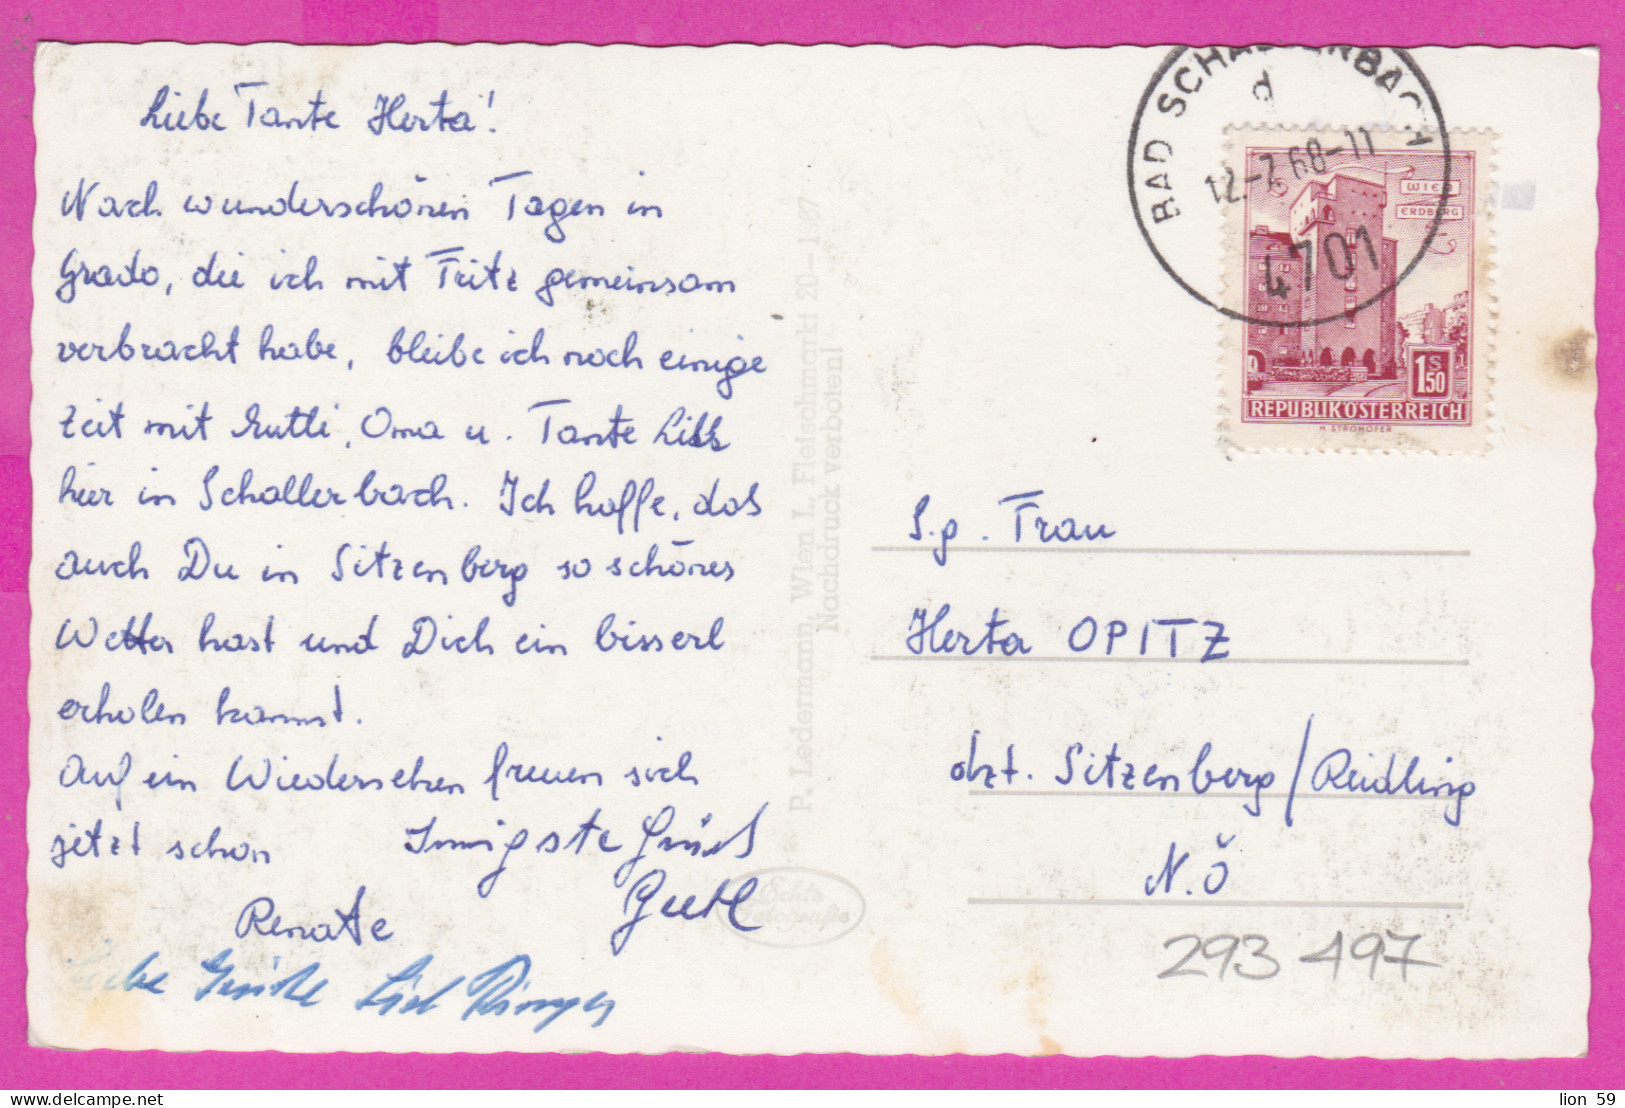 Liebe Tante Herta!
Nach wunderschönen Tagen in
Grado, die ich mit Fritz gemeinsam
verbracht habe, bleibe ich noch einige
Zeit mit Mutti, Oma u. Tante
hier in Schallerbach. Ich hoffe, das
auch Du in Sitzenberg so schönes
Wetter hast und Dich ein bisserl
erholen kannst.
Auf ein Wiedersehen freuen sich
jetzt schon Innigste Grüße
Renate
P. Ledermann, Wien I., Fleischmarkt 20 – 1967
Nachdruck verboten!
Echte
Fotografie
BAD SCHALLERBACH
d
12.-7.68-11
4701
WIEN
ERDBERG
1S50
REPUBLIK ÖSTERREICH
H. STROHOFER
S.g. Frau
Herta OPITZ
dzt. Sitzenberg/Reidling
N.Ö
293 497
delcampe.net
lion_59